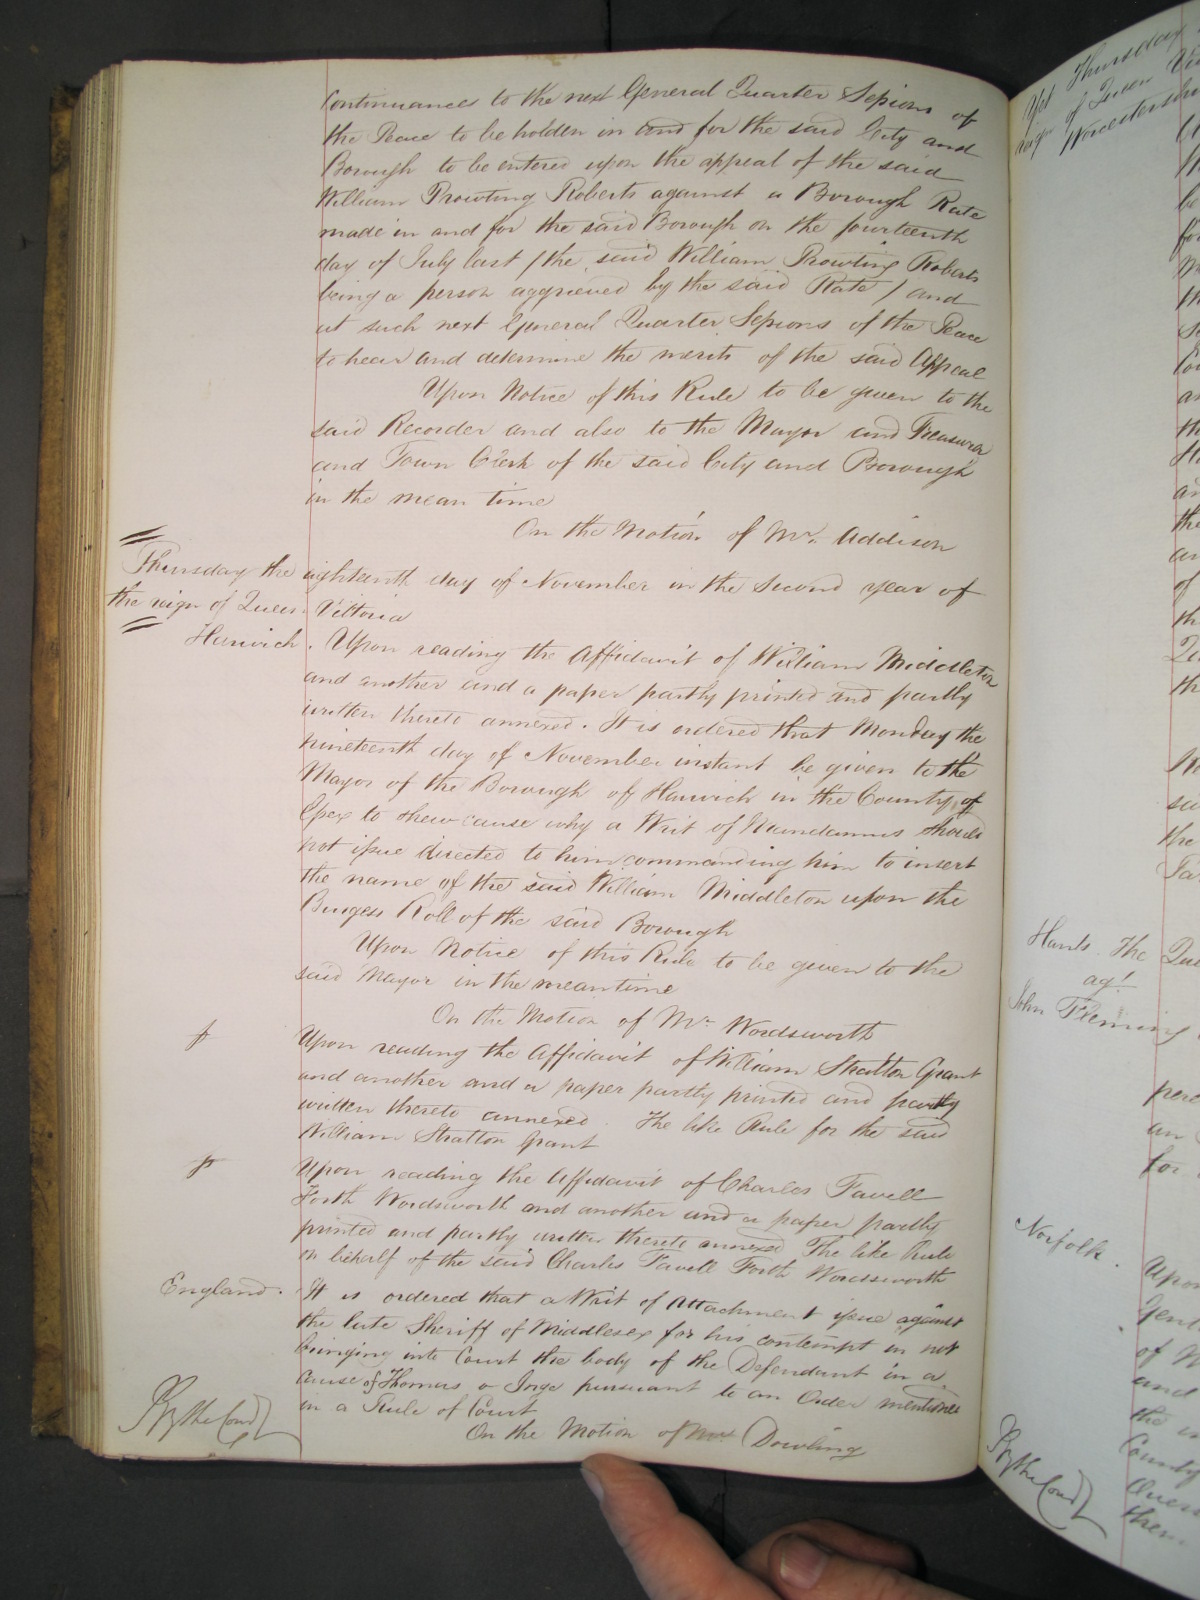 Continuances to the next General Quarter Sessions of
the Peace to be holden in and for the said City and
Borough to be entered upon the appeal of the said
William Prowting Roberts against a Borough Rate
made in and for the said Borough on the fourteenth
day of July last / the said William Prowting Roberts
being a person aggrieved by the said Rate / and
at such next General Quarter Sessions of the Peace
to hear and determine the merits of the said Appeal
Upon Notice of this Rule to be given to the
said Recorder and also to the Mayor and Treasurer
and Town Clerk of the said City and Borough
in the mean time
On the Motion of Mr. Addison
Thursday the eighteenth day of November in the Second year of
the reign of Queen Victoria
Harwich. Upon reading the Affidavit of William Middleton
and another and a paper partly printed and partly
written thereto annexed. It is ordered that Monday the
nineteenth day of November instant be given to the
Mayor of the Borough of Harwich in the County of
Essex to shew cause why a Writ of Mandamus should
not issue directed to him commanding him to insert
the name of the said William Middleton upon the
Burgess Roll of the said Borough
Upon Notice of this Rule to be given to the
said Mayor in the meantime
On the Motion of Mr Wordsworth
Upon reading the Affidavit of William Stratton Grant
and another and a paper partly printed and partly
written thereto annexed. The like Rule for the said
William Stratton Grant
Upon reading the Affidavit of Charles Favell
Forth Wordsworth and another and a paper partly
printed and partly written thereto annexed The like Rule
on behalf of the said Charles Favell Forth Wordsworth
England. It is ordered that a Writ of Attachment issue against
the late Sheriff of Middlesex for his contempt in not
bringing into Court the body of the Defendant in a
cause of Thomas v Inge pursuant to an Order mentioned
in a Rule of Court
On the Motion of Mr Dowling
By the Court
Yet Thursday
reign of Queen
Worcestershire
Hants. The Queen
agt
John Fleming
Norfolk.
Upon
of
and
the
County
them
By the Court